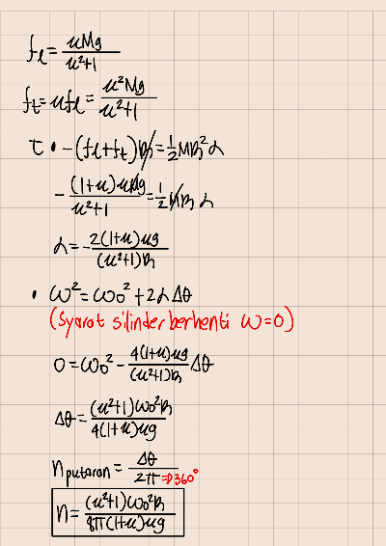 fℓ = uMg/u²+1
ft = ufℓ = u²Mg/u²+1
τ • -(fℓ+ft)R = 1/2 MR²α
-(1+u)uMg/u²+1 = 1/2 MR α
α = -2(1+u)ug/(u²+1)R
• ω² = ω₀² + 2αΔθ
(Syarat silinder berhenti ω=0)
0 = ω₀² - 4(1+u)ug/(u²+1)R Δθ
Δθ = (u²+1)ω₀²R/4(1+u)ug
nputaran = Δθ/2π ⇒ 360°
n = (u²+1)ω₀²R/8π(1+u)ug